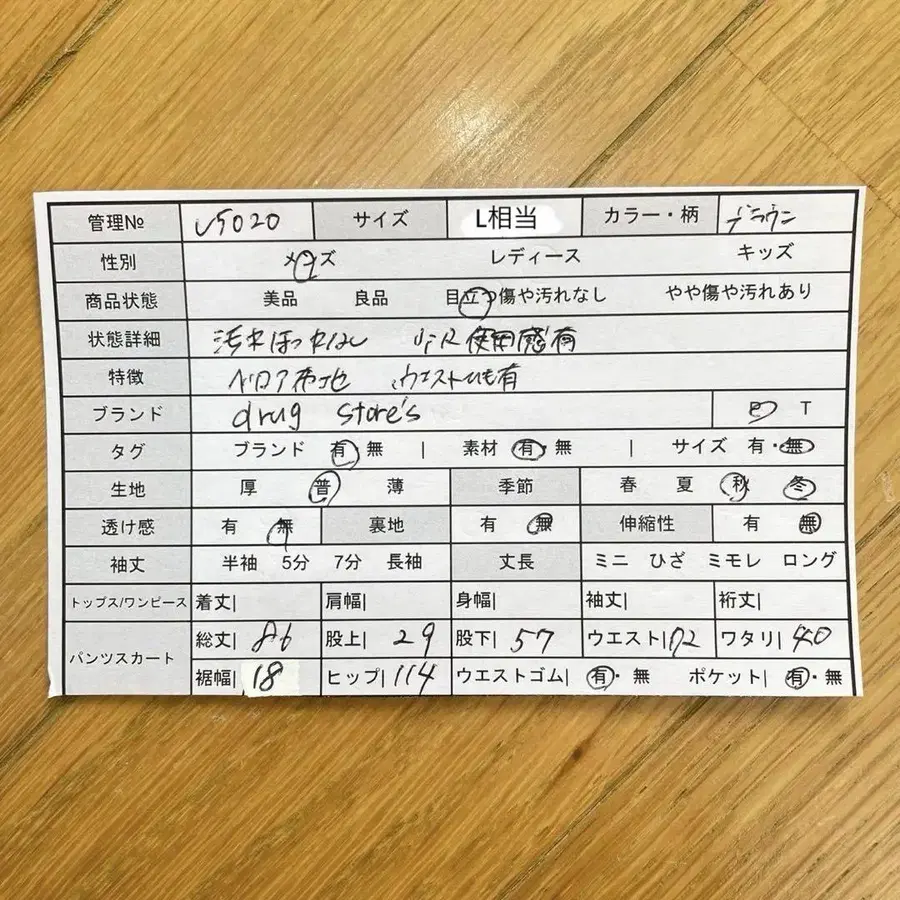 管理№ 5020 サイズ L相当 カラー・柄 ブラウン
性別 メンズ レディース キッズ
商品状態 美品 良品 目立つ傷や汚れなし やや傷や汚れあり
状態詳細 汚れほつれなし 使用感有
特徴 ベロア布地 ウエストひも有
ブランド drug store's B T
タグ ブランド 有・無 | 素材 有・無 | サイズ 有・無
生地 厚 普 薄 季節 春 夏 秋 冬
透け感 有 無 裏地 有 無 伸縮性 有 無
袖丈 半袖 5分 7分 長袖 丈長 ミニ ひざ ミモレ ロング
トップス/ワンピース 着丈| 肩幅| 身幅| 袖丈| 裄丈|
パンツスカート 総丈| 86 股上| 29 股下| 57 ウエスト| 72 ワタリ| 40
裾幅| 18 ヒップ| 114 ウエストゴム| 有・無 ポケット| 有・無